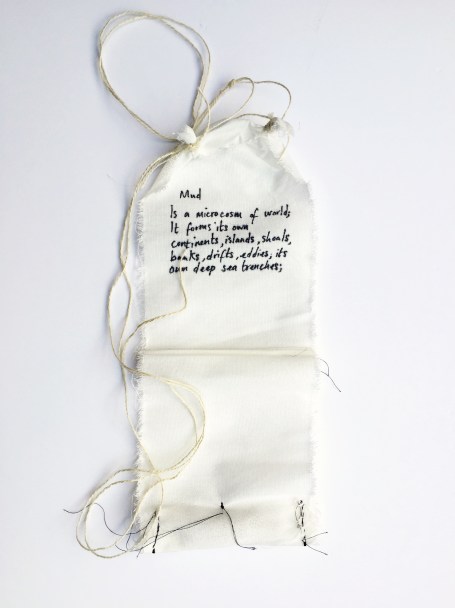 Mud
Is a microcosm of world;
It forms its own
continents, islands, shoals,
banks, drifts, eddies, its
own deep sea trenches;